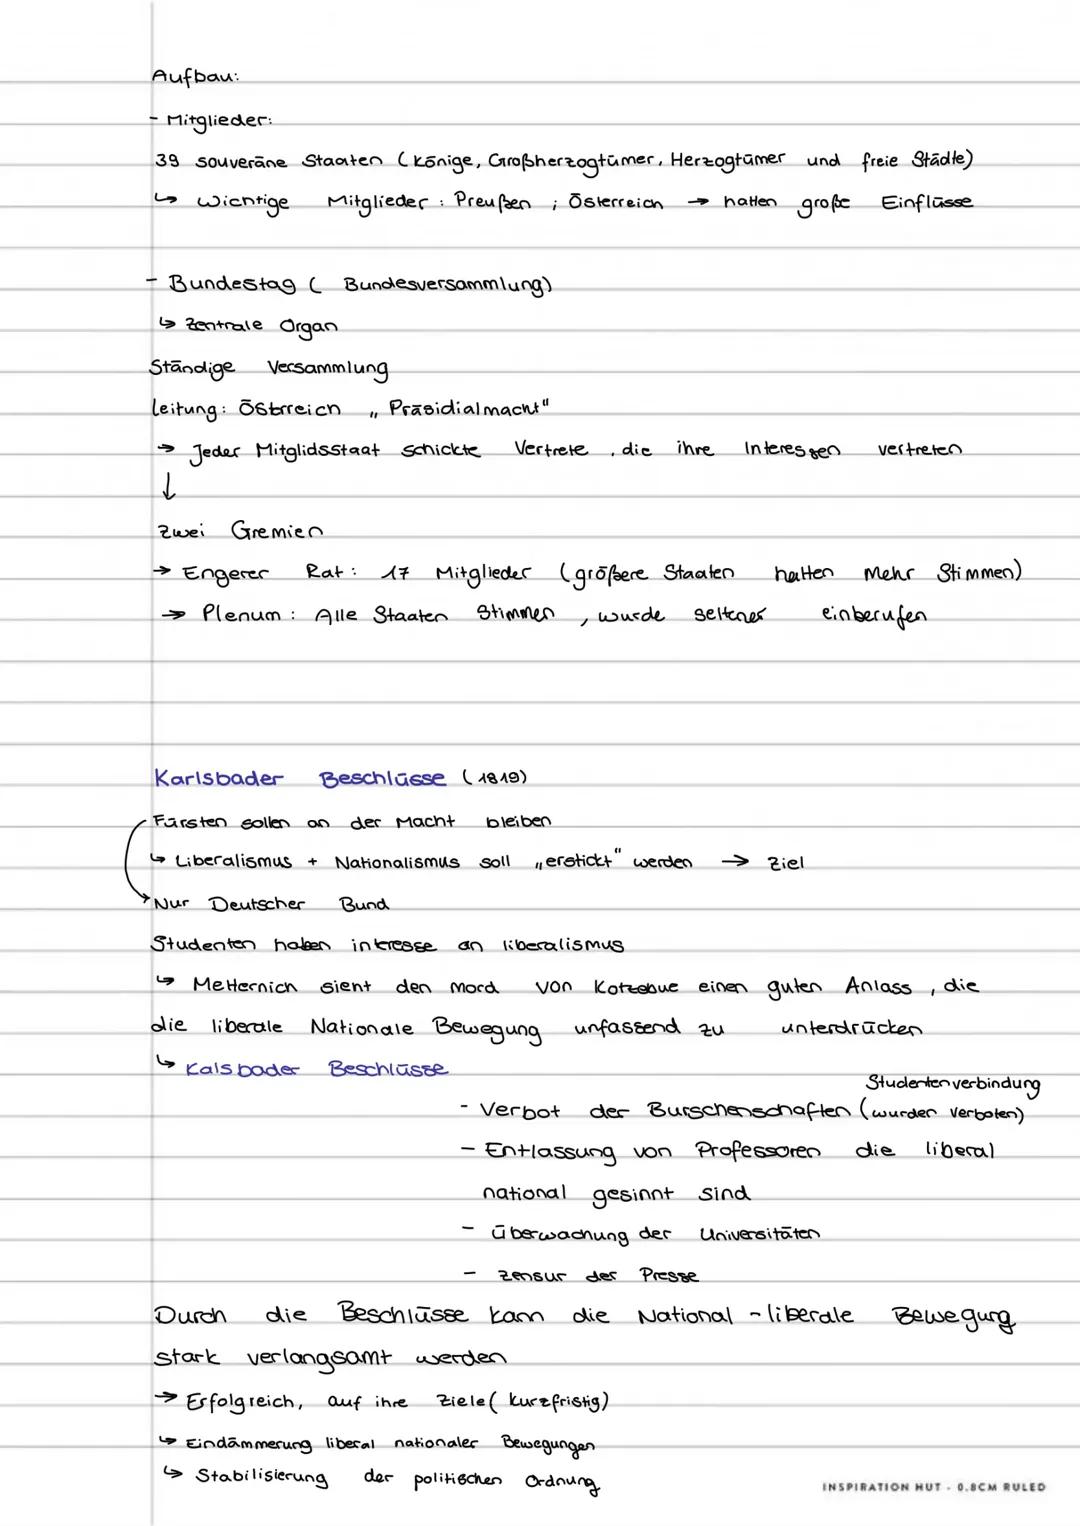 Aufbau:
- Mitglieder:
39 souveräne Staaten (Könige, Großherzogtümer, Herzogtümer und freie Städte)
↳ Wichtige Mitglieder : Preußen ; Österreich → hatten große Einflüsse
- Bundestag ( Bundesversammlung)
↳ Zentrale Organ
Ständige Versammlung
Leitung: Östrreich „ Präsidialmacht"
→ Jeder Mitglidsstaat schickte Vertrete , die ihre Interessen vertreten
↓
Zwei Gremien
→ Engerer Rat : 17 Mitglieder (größere Staaten hatten mehr Stimmen)
→ Plenum : Alle Staaten Stimmen , wurde seltener einberufen
Karlsbader Beschlüsse (1819)
Fürsten sollen an der Macht bleiben
↳ Liberalismus + Nationalismus soll „erstickt" werden → Ziel
Nur Deutscher Bund
Studenten haben intresse an liberalismus
↳ Metternich sieht den mord von Kotzebue einen guten Anlass , die
die liberale Nationale Bewegung unfassend zu unterdrücken
↳ Kalsbader Beschlüsse
Studentenverbindung
- Verbot der Burschenschaften (wurden verboten)
- Entlassung von Professoren die liberal
national gesinnt sind
- überwachung der Universitäten
- zensur der Presse
Durch die Beschlüsse kann die National - liberale Bewegung
stark verlangsamt werden
→ Erfolgreich, auf ihre Ziele( kurzfristig)
↳ Eindämmerung liberal nationaler Bewegungen
↳ Stabilisierung der politischen Ordnung
INSPIRATION HUT - 0.8CM RULED